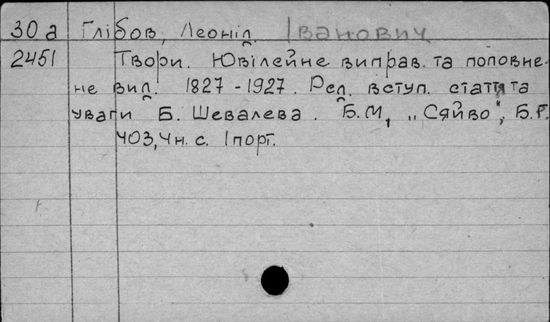 30а Глібов, Леонід Іванович
2451 Твори. Ювілейне виправ. та поповне-
не вид. 1827-1927. Ред. вступ. стаття та
уваги Б. Шевалева. Б.М, „Сяйво", Б.Р.
403, 4 н. с. 1 порт.